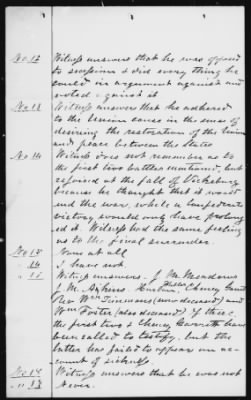 No 12 Witness answers that he was opposed
to secession & did every thing he
could in argument against and
voted against it
No 13 Witness answers that he adhered
to the Union cause in the sense of
desiring the restoration of the Union
and peace between the States
No 14 Witness does not remember as to
the first two battles mentioned, but
rejoiced at the fall of Vicksburg
because he thought that it would
end the war, while a Confederate
victory would only have prolong
ed it. Witness had the same feeling
as to the final surrender.
No 15 None at all
" 16 I have not
" 15 Witness answers. J M Meadows
J. M. Aikins Cheney Garrett
Rev Wm Timmons (now deceased) and
Wm Foster (also deceased) of these
the first two & Cheney Garrett have
been called to testify, but the
latter has failed to appear on ac
count of sickness
No 14 Witness answers that he was not
" 17 Never.